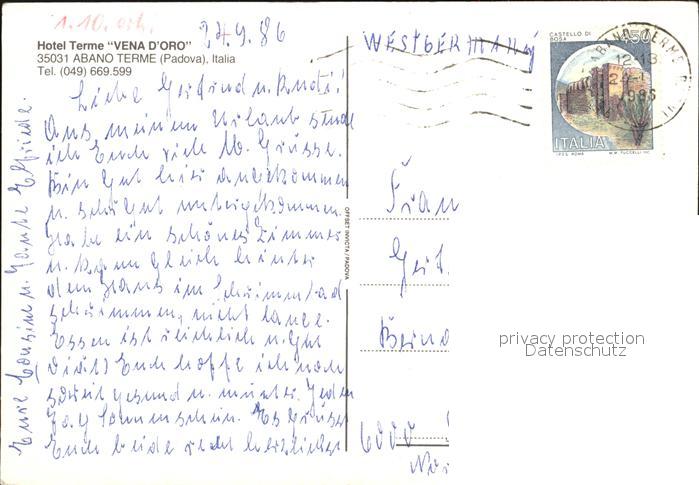 1.10. erh.
24.9.86
Hotel Terme "VENA D'ORO"
35031 ABANO TERME (Padova), Italia
Tel. (049) 669.599
Liebe Gertrud u. Rudi!
Aus meinem Urlaub sende
ich Euch viele lb. Grüsse.
Bin gut hier angekommen
u. sehr gut untergekommen.
Habe ein schönes Zimmer
u. kann gleich hinter
dem Haus im Schwimmbad
schwimmen, nicht lange.
Essen ist reichlich u. gut
Euch hoffe ich noch
soweit gesund u. munter. Jeden
Tag Sonnenschein. Es grüsst
Euch beide recht herzlichst
Eure Cousine u. Tante Elfriede.
OFFSET INVICTA / PADOVA
WESTGERMANY
CASTELLO DI
BOSA
450
ITALIA
I.P.Z.S. ROMA
ABANO TERME
12-13
1986
Frau
Gert
6000
privacy protection
Datenschutz